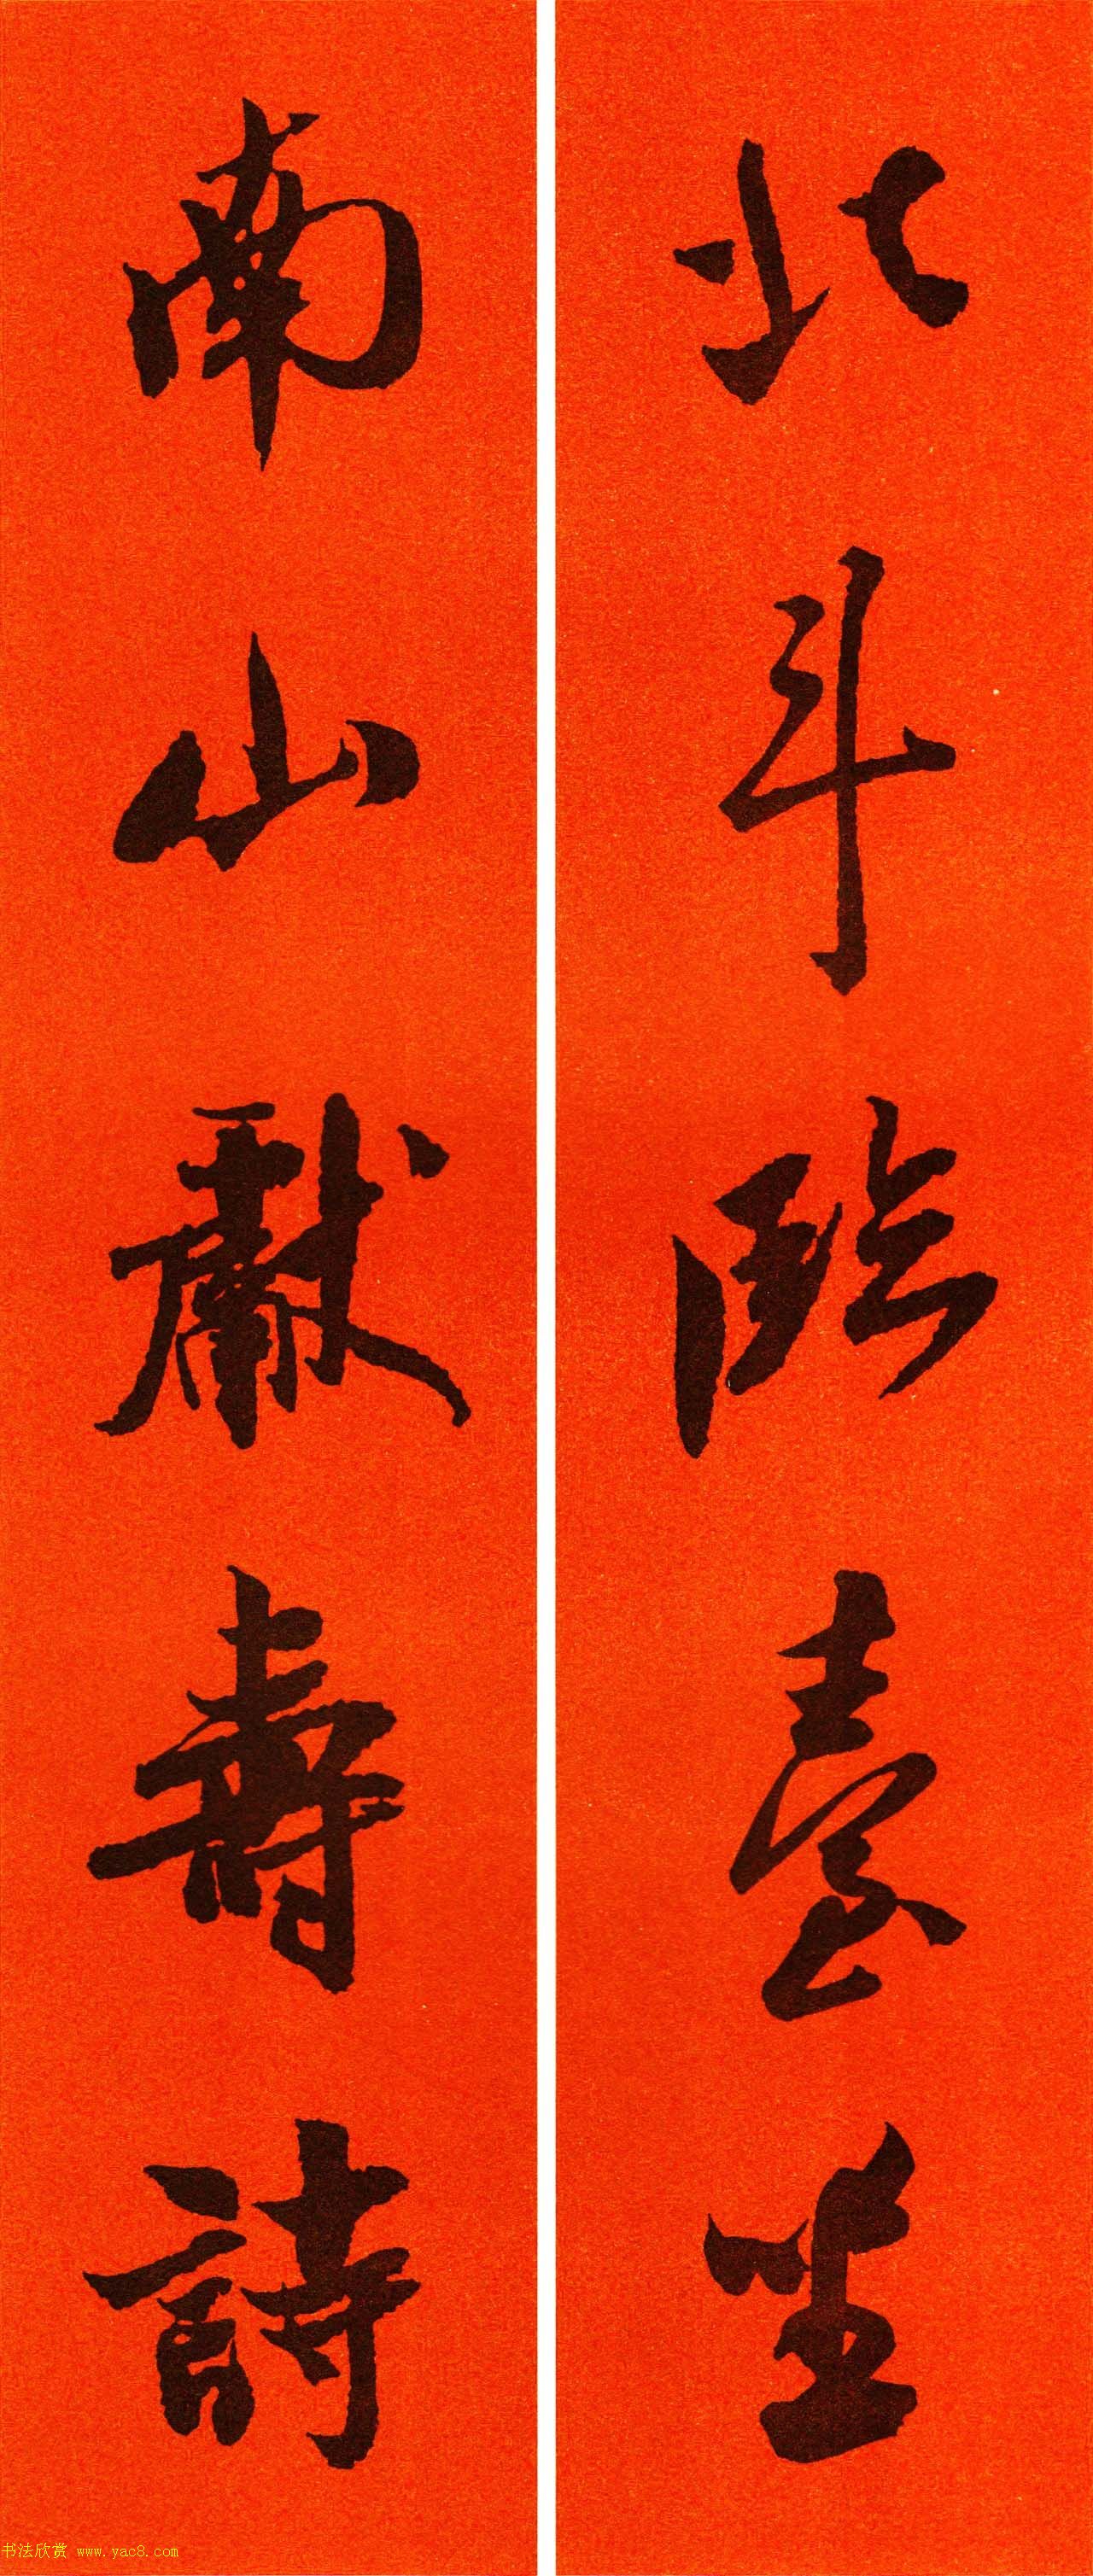 北斗臨臺坐
南山獻壽詩
书法欣赏 www.yac8.com